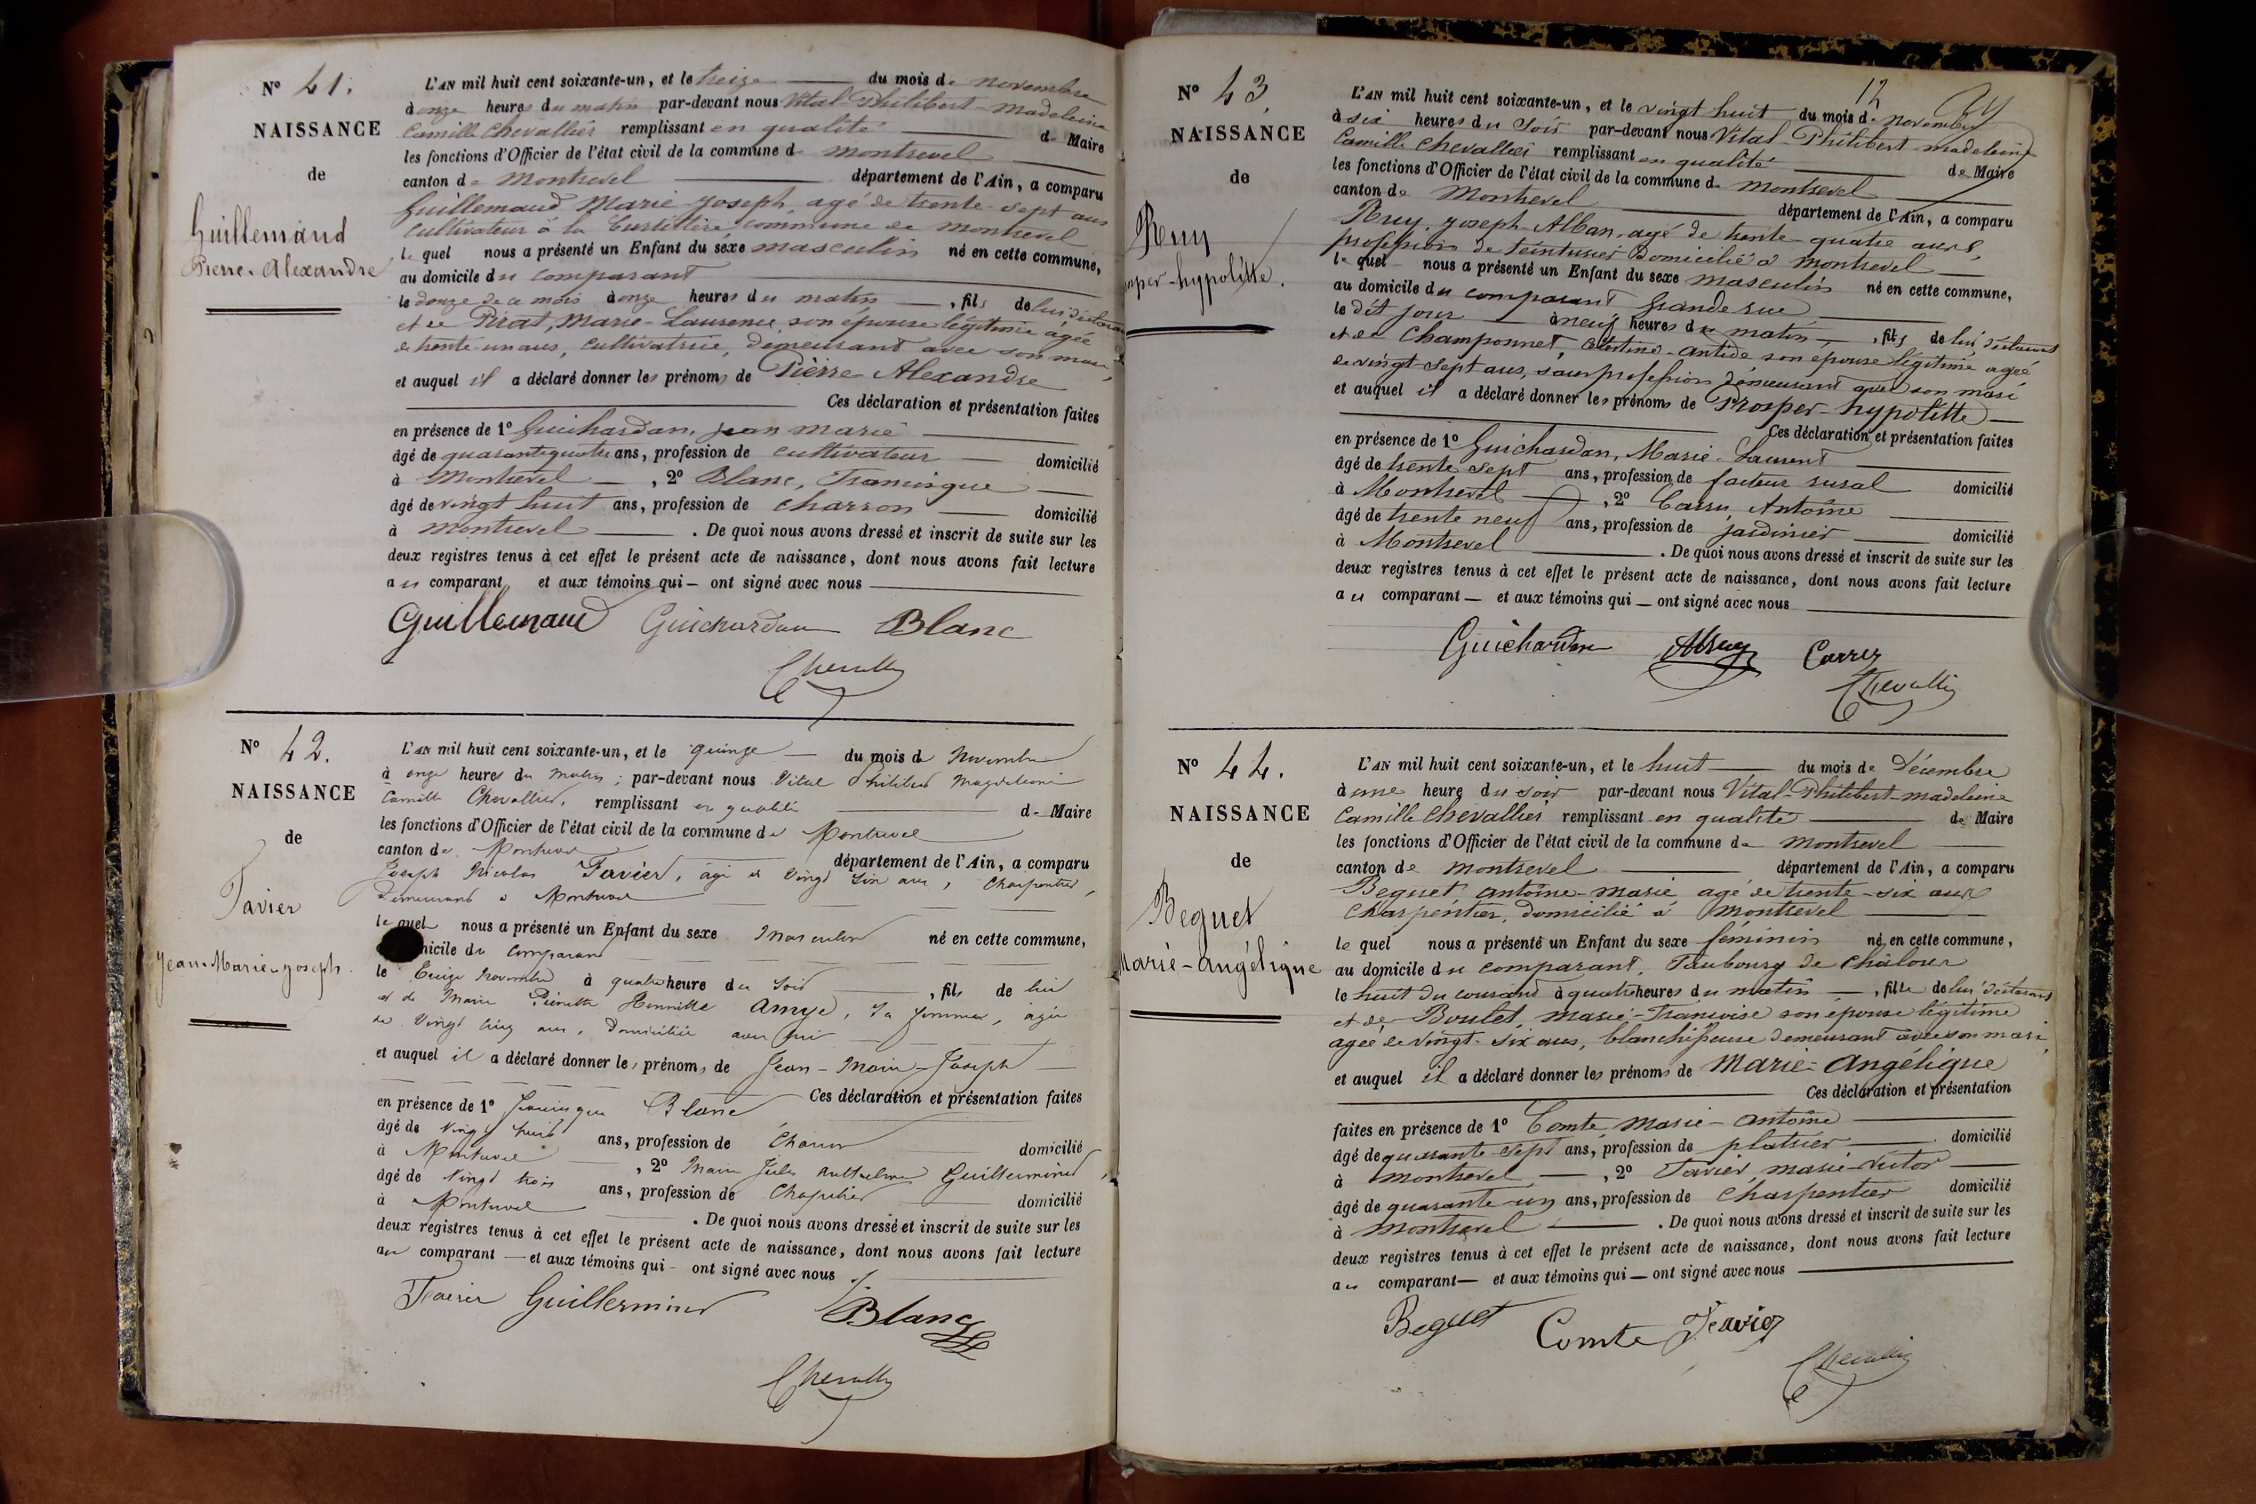 N° 41.
NAISSANCE
de
Guillemaud
Pierre-Alexandre
L'AN mil huit cent soixante-un, et le treize du mois de novembre
à onze heures du matin par-devant nous Vital-Philibert-Madeleine
Camille Chevallier remplissant en qualité de Maire
les fonctions d'Officier de l'état civil de la commune de montrevel
canton de Montrevel département de l'Ain, a comparu
Guillemaud Marie Joseph agé de trente-sept ans
cultivateur à la commune de montrevel
le quel nous a présenté un Enfant du sexe masculin né en cette commune,
au domicile du comparant
le douze de ce mois à onze heures du matin, fils de lui déclarant
et de Pirat, Marie-Laurence, son épouse légitime âgée
de trente-un ans, cultivatrice, demeurant avec son mari,
et auquel il a déclaré donner les prénoms de Pierre Alexandre
Ces déclaration et présentation faites
en présence de 1° Guichardan, jean marie
âgé de quarante quatre ans, profession de cultivateur domicilié
à Montrevel, 2° Blanc, Francisque
âgé de vingt huit ans, profession de charron domicilié
à montrevel. De quoi nous avons dressé et inscrit de suite sur les
deux registres tenus à cet effet le présent acte de naissance, dont nous avons fait lecture
au comparant et aux témoins qui – ont signé avec nous
Guillemaud Guichardan Blanc
Chevallier
N° 42.
NAISSANCE
de
Favier
Jean-Marie-Joseph.
L'AN mil huit cent soixante-un, et le quinze du mois de Novembre
à onze heures du matin; par-devant nous Vital Philibert Magdeleine
Camille Chevallier, remplissant en qualité de Maire
les fonctions d'Officier de l'état civil de la commune de Montrevel
canton de Montrevel département de l'Ain, a comparu
Joseph Nicolas Favier, âgé de vingt six ans, Charpentier,
Demeurant à Montrevel
le quel nous a présenté un Enfant du sexe Masculin né en cette commune,
micile du comparant
le treize Novembre à quatre heure du soir, fils de lui
et de Marie Pierrette Amye, sa femme, âgée
de vingt cinq ans, domiciliée avec lui
et auquel il a déclaré donner les prénoms de Jean-Marie-Joseph
Ces déclaration et présentation faites
en présence de 1° Francisque Blanc
âgé de vingt huit ans, profession de Charron domicilié
à Montrevel, 2° Marie Jules Anthelme Guillerminet,
âgé de vingt trois ans, profession de Chapelier domicilié
à Montrevel. De quoi nous avons dressé et inscrit de suite sur les
deux registres tenus à cet effet le présent acte de naissance, dont nous avons fait lecture
au comparant – et aux témoins qui – ont signé avec nous
Favier Guillerminet Blanc
Chevallier
12
N° 43.
NAISSANCE
de
Ruy
sper-hypolitte.
L'AN mil huit cent soixante-un, et le vingt huit du mois de novembre
à six heures du soir par-devant nous Vital-Philibert madeleine
Camille Chevallier remplissant en qualité de Maire
les fonctions d'Officier de l'état civil de la commune de montrevel
canton de Montrevel département de l'Ain, a comparu
Ruy, joseph-Alban, agé de trente quatre ans,
profession de teinturier domicilié à montrevel
le quel nous a présenté un Enfant du sexe masculin né en cette commune,
au domicile du comparant grande rue
le dit jour à neuf heures du matin, fils de lui déclarant
et de Champonnet, Célestine-Antide son epouse légitime agée
de vingt-sept ans, sans profession demeurant avec son mari
et auquel il a déclaré donner les prénoms de Prosper-hypolitte
Ces déclaration et présentation faites
en présence de 1° Guichardan, Marie-Laurent
âgé de trente sept ans, profession de facteur rural domicilié
à Montrevel, 2° Carry Antoine
âgé de trente neuf ans, profession de jardinier domicilié
à Montrevel. De quoi nous avons dressé et inscrit de suite sur les
deux registres tenus à cet effet le présent acte de naissance, dont nous avons fait lecture
au comparant – et aux témoins qui – ont signé avec nous
Guichardan ARuy Carrez
Chevallier
N° 44.
NAISSANCE
de
Beguet
Marie-angélique
L'AN mil huit cent soixante-un, et le huit du mois de Décembre
à une heure du soir par-devant nous Vital-Philibert-madeleine
Camille Chevallier remplissant en qualité de Maire
les fonctions d'Officier de l'état civil de la commune de montrevel
canton de montrevel département de l'Ain, a comparu
Beguet, antoine-marie agé de trente-six ans
charpentier, domicilié à Montrevel
le quel nous a présenté un Enfant du sexe féminin né en cette commune,
au domicile du comparant, Faubourg de Châlon
le huit du courant à quatre heures du matin, fille de lui déclarant
et de Boulet, marie-françoise son épouse légitime
agée de vingt-six ans, blanchisseuse demeurant avec son mari,
et auquel il a déclaré donner les prénoms de Marie-Angélique
Ces déclaration et présentation
faites en présence de 1° Comte, Marie-antoine
âgé de quarante-sept ans, profession de platrier domicilié
à montrevel, 2° Favier, marie-Victor
âgé de quarante-un ans, profession de Charpentier domicilié
à montrevel. De quoi nous avons dressé et inscrit de suite sur les
deux registres tenus à cet effet le présent acte de naissance, dont nous avons fait lecture
au comparant – et aux témoins qui – ont signé avec nous
Beguet Comte Favier
Chevallier